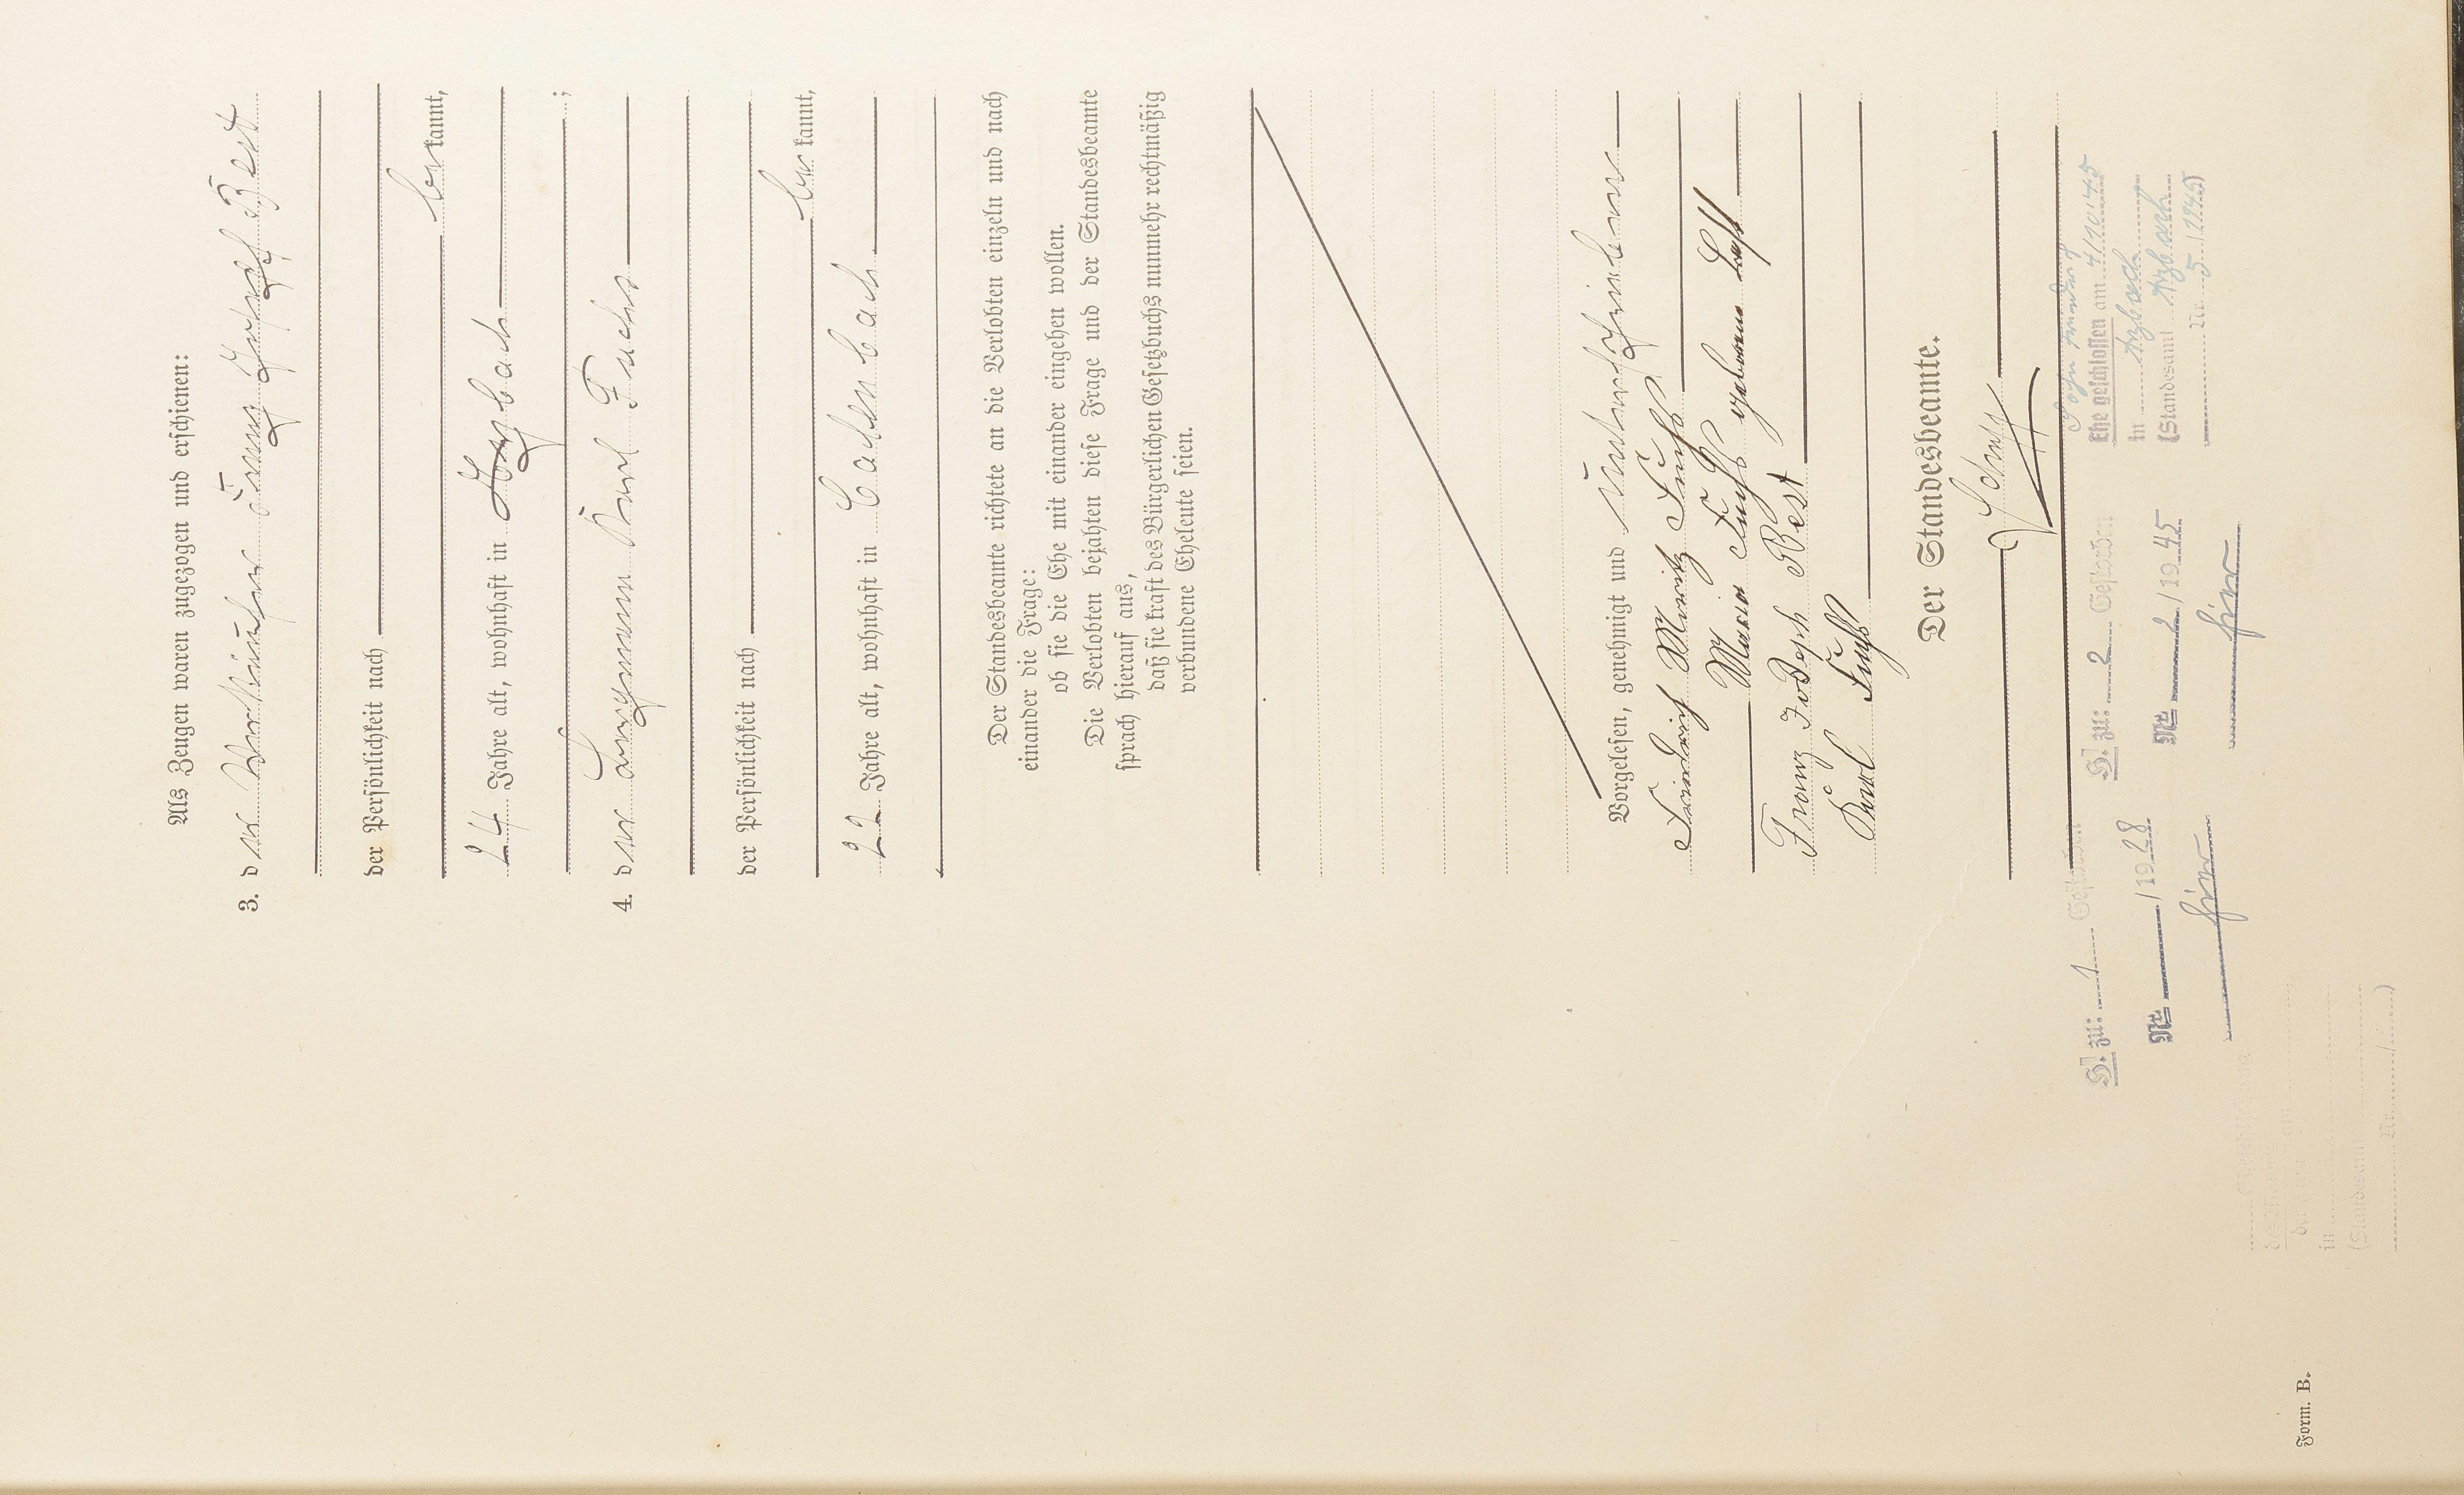 Als Zeugen waren zugezogen und erschienen:
3. der Verkäufer Franz Joseph Best
der Persönlichkeit nach
be kannt,
24 Jahre alt, wohnhaft in Arzbach
;
4. der Bergmann Karl Fuchs
der Persönlichkeit nach
be kannt,
22 Jahre alt, wohnhaft in Cadenbach
Der Standesbeamte richtete an die Verlobten einzeln und nach
einander die Frage:
ob sie die Ehe mit einander eingehen wollen.
Die Verlobten bejahten diese Frage und der Standesbeamte
sprach hierauf aus,
daß sie kraft des Bürgerlichen Gesetzbuchs nunmehr rechtmäßig
verbundene Eheleute seien.
Vorgelesen, genehmigt und unterschrieben
Friedrich Moritz Fuchs
Maria Fuchs geborene
Franz Joseph Best
Karl Fuchs
Der Standesbeamte.
Ehe geschlossen am 4/10.45
in Arzbach
(Standesamt Arzbach
Nr. 5/1945)
H. zu: 1 Gestorben
Nr. /1928
hier
H. zu: 2 Gestorben
Nr. 2/1945
hier
in
(Standesamt
Nr. / )
Form. B.